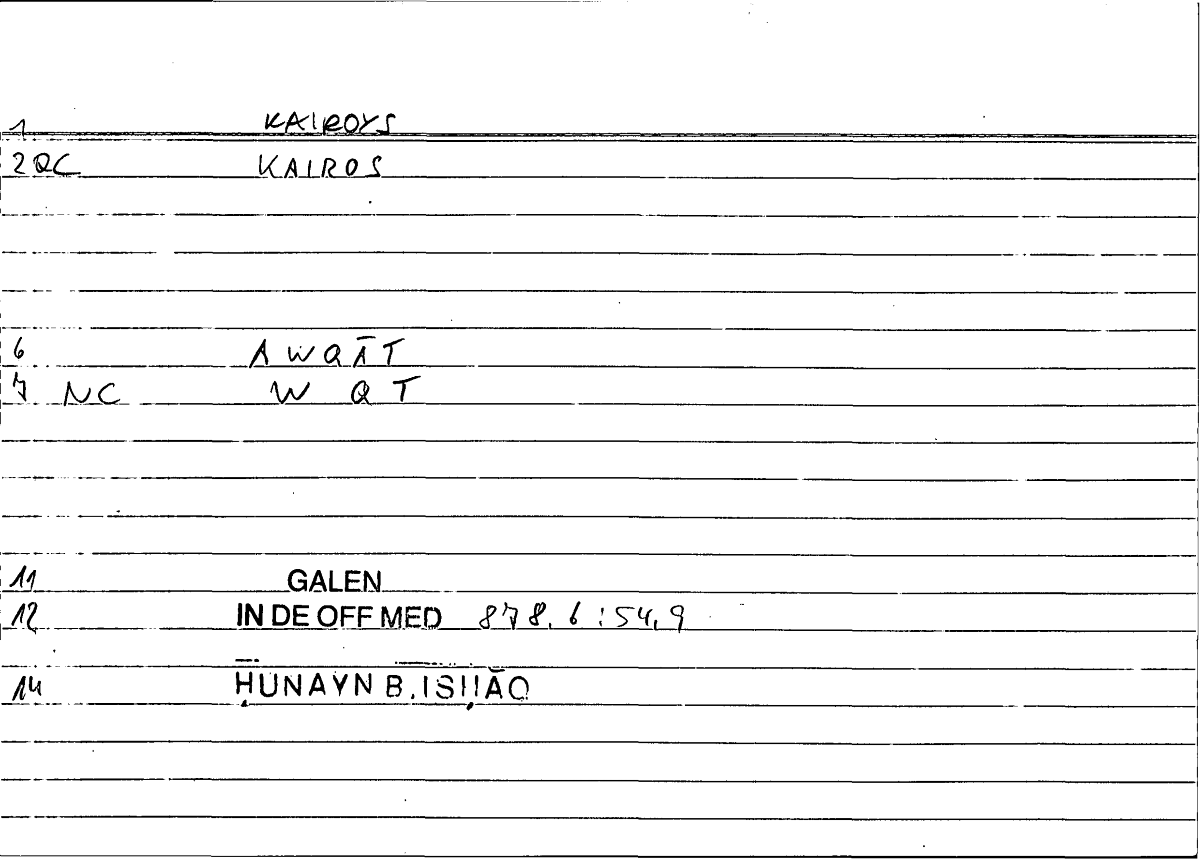 1 KAIROYS
2 QC KAIROS
6 AWQĀT
7 NC W Q T
11 GALEN
12 IN DE OFF MED 878,6 : 54,9
14 ḤUNAYN B. ISḤĀQ